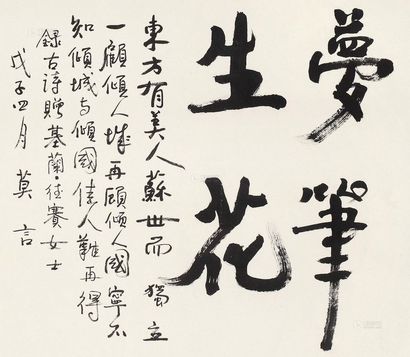 夢筆
生花
東方有美人蘇世而獨立
一顧傾人城再顧傾人國寧不
知傾城与傾國佳人難再得
錄古詩贈基蘭·德賽女士
戊子四月 莫言